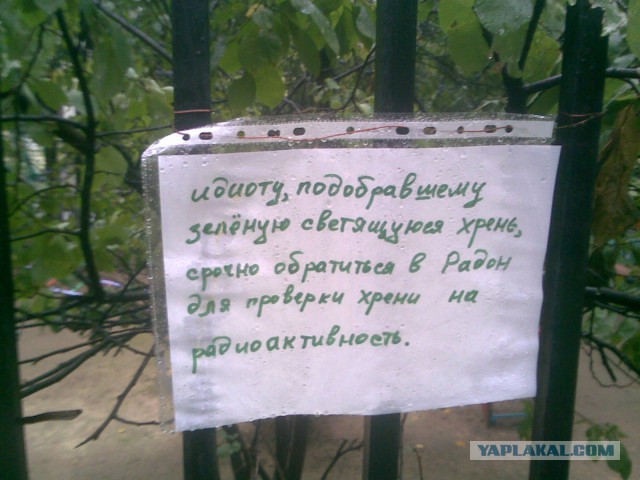 идиоту, подобравшему
зелёную светящуюся хрень,
срочно обратиться в Радон
для проверки хрени на
радиоактивность.
YAPLAKAL.COM